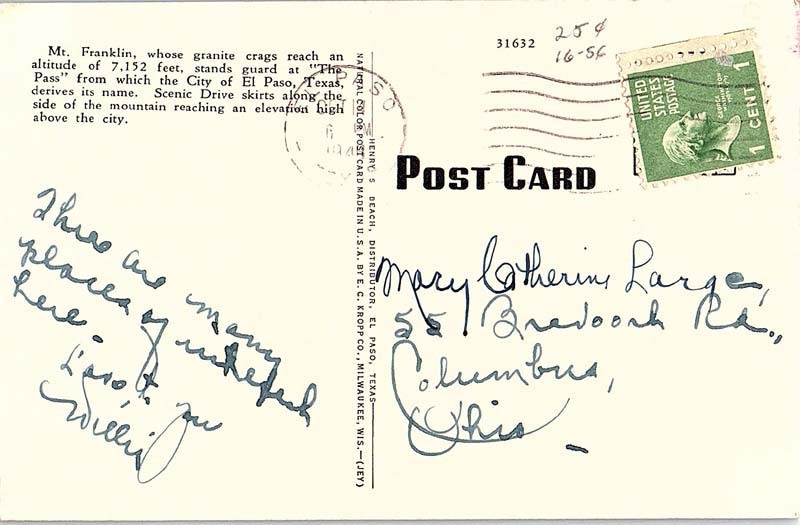 Mt. Franklin, whose granite crags reach an
altitude of 7,152 feet, stands guard at "The
Pass" from which the City of El Paso, Texas,
derives its name. Scenic Drive skirts along the
side of the mountain reaching an elevation high
above the city.
There are many
places of interest
here.
Willis
NATIONAL COLOR POST CARD MADE IN U.S.A. BY E. C. KROPP CO., MILWAUKEE, WIS.—(JEY)
HENRY S BEACH, DISTRIBUTOR, EL PASO, TEXAS
31632
25¢
16-56
PASO
UNITED
STATES
POSTAGE
1 CENT 1
POST CARD
Mary Catherine Large,
55 Rd.,
Columbus,
Ohio